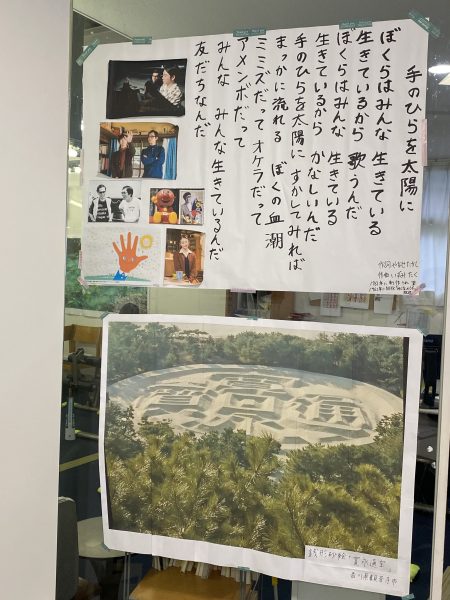 手のひらを太陽に
ぼくらはみんな 生きている
生きているから 歌うんだ
ぼくらはみんな 生きている
生きているから かなしいんだ
手のひらを太陽に すかしてみれば
まっかに流れる ぼくの血潮
ミミズだって オケラだって
アメンボだって
みんな みんな生きているんだ
友だちなんだ
作詞 やなせたかし
作曲 いずみたく
寛永通寳
銭形砂絵・「寛永通宝」
香川県観音寺市